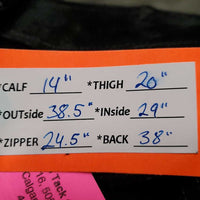 *CALF 14" *THIGH 20"
*OUTside 38.5" *INside 29"
*ZIPPER 24.5" *BACK 38"
Tack
16, 50
Calga